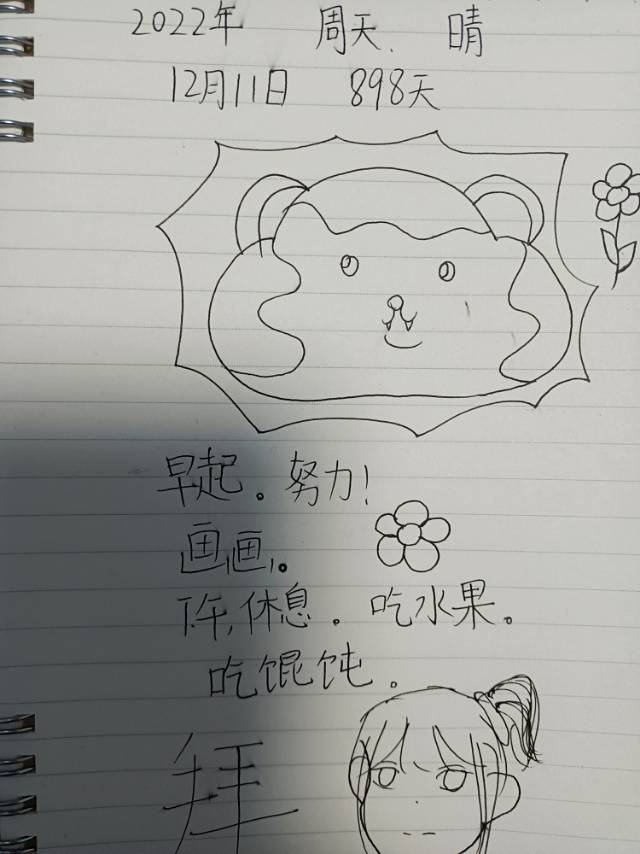 2022年 周天、 晴
12月11日 898天
早起。努力！
画画。
下午,休息。吃水果。
吃馄饨。
拜